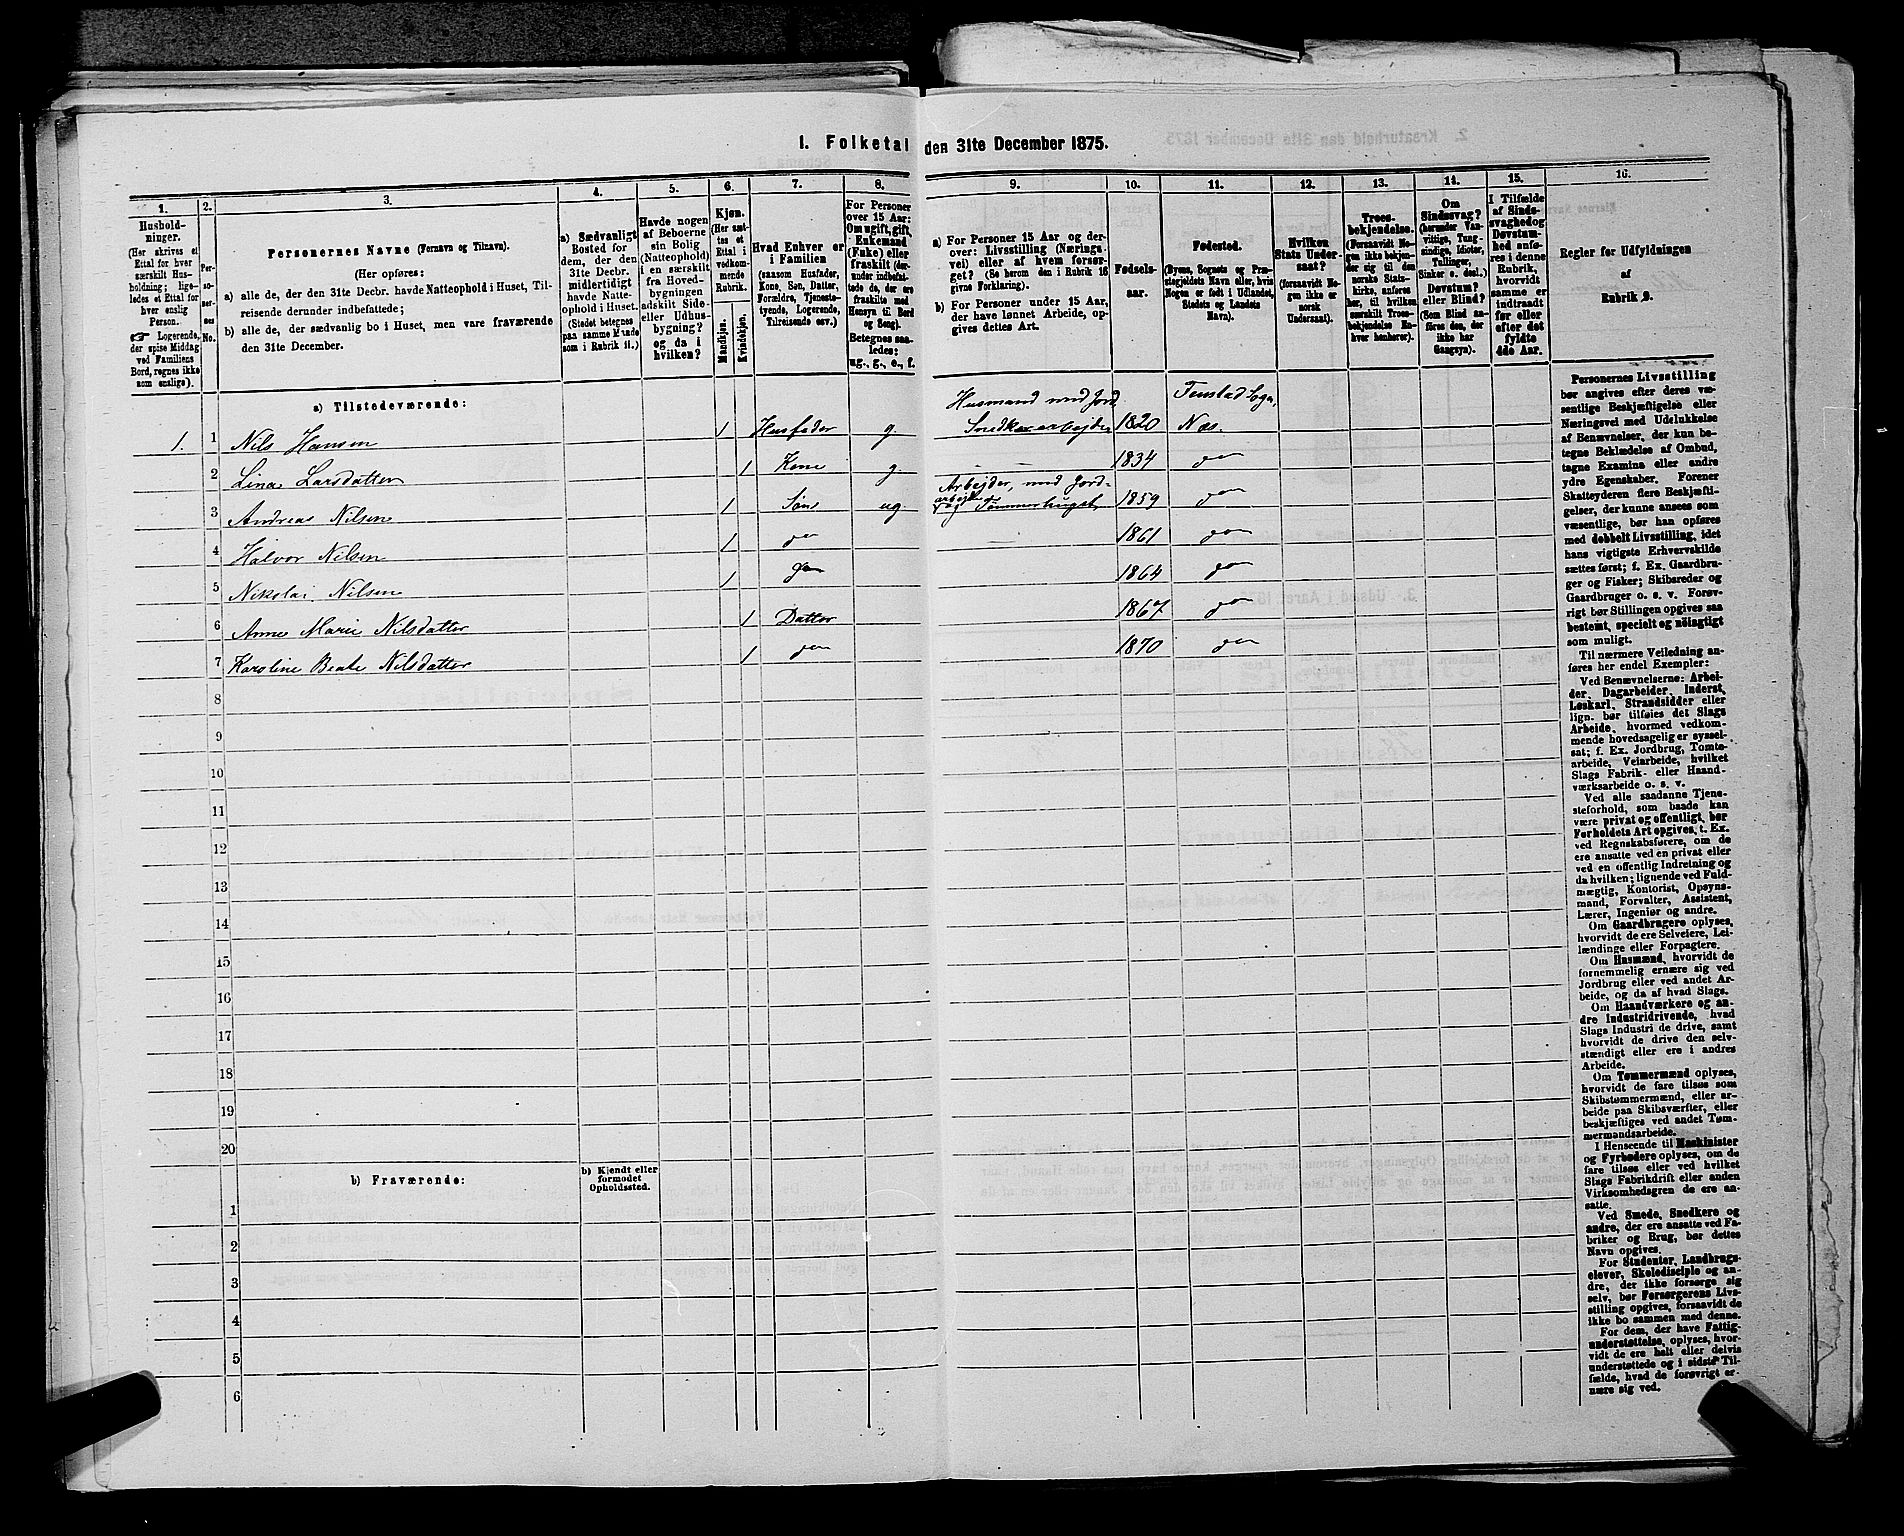 1. Folketal den 31te December 1875.
1.
Husholdninger.
(Her skrives et
Ettal for hver
særskilt Husholdning;
ligeledes et Ettal for
hver enslig
Person.
☞ Logerende,
der spise Middag
ved Familiens
Bord, regnes ikke
som enslige).
2.
Personernes
No.
3.
Personernes Navne (Fornavn og Tilnavn).
(Her opføres:
a) alle de, der den 31te Decbr. havde Natteophold i Huset, Tilreisende
derunder indbefattede;
b) alle de, der sædvanlig bo i Huset, men vare fraværende
den 31te December.
4.
a) Sædvanligt
Bosted for
dem, der den
31te Decbr.
midlertidigt
havde Natteophold
i Huset.
(Stedet betegnes
paa samme Maade
som i Rubrik 11.)
5.
Havde nogen
af Beboerne
sin Bolig
(Natteophold)
i en særskilt
fra Hovedbygningen
adskilt Side-
eller Udhusbygning?
og da i
hvilken?
6.
Kjøn.
(Her sættes
et
Ettal i
vedkommende
Rubrik.
Mandkjøn.
Kvindekjøn.
7.
Hvad Enhver er
i Familien
(saasom Husfader,
Kone, Søn, Datter,
Forældre, Tjenestetyende,
Logerende,
Tilreisende osv.)
8.
For Personer
over 15 Aar:
Om ugift, gift,
Enkemand
(Enke) eller
fraskilt (derunder
indbefattede
de, der ere
fraskilte med
Hensyn til Bord
og Seng).
Betegnes saaledes:
ug., g., e., f.
9.
a) For Personer 15 Aar og derover:
Livsstilling (Næringsvei)
eller af hvem forsørget?
(Se herom den i Rubrik 16
givne Forklaring).
b) For Personer under 15 Aar,
der have lønnet Arbeide, opgives
dettes Art.
10.
Fødselsaar.
11.
Fødested.
(Byens, Sognets og Præstegjeldets
Navn eller, hvis
Nogen er født i Udlandet,
Stedets og Landets
Navn).
12.
Hvilken
Stats Undersaat?
(forsaavidt Nogen
ikke er
norsk
Undersaat).
13.
Troesbekjendelse.
(Forsaavidt Nogen
ikke bekjender
sig til den
norske Statskirke,
anføres
her, til hvilken
særskilt Troesbekjendelse
Enhver
henhører).
14.
Om
Sindssvag?
(herunder Vanvittige,
Tungsindige,
Idioter,
Tullinger,
Sinker o. desl.)
Døvstum?
eller Blind?
(Som Blind anføres
den, der
ikke har
Gangsyn).
15.
I Tilfælde
af Sindssvaghed
og
Døvstumhed
anføres
i denne
Rubrik,
hvorvidt
samme er
indtraadt
før eller
efter det
fyldte
4de Aar.
16.
Regler for Udfyldningen
af
Rubrik 9.
a) Tilstedeværende:
Husmand med Jord Fenstad Sogn,
1. 1 Nils Hansen 1 Husfader g. Snedkerarbejder 1820 Næs.
2 Lina Larsdatter 1 Kone g. — 1834 do
Arbejder, med Jord-
arbejde
3 Andreas Nilsen 1 Søn ug og Tømmerhugst 1859 do
4 Halvor Nilsen 1 do — 1861 do
5 Nikolai Nilsen 1 do 1864 do
6 Anne Marie Nilsdatter 1 Datter 1867 do
7 Karoline Beate Nilsdatter 1 do 1870 do
8
9
10
11
12
13
14
15
16
17
18
19
20
b) Fraværende:
b) Kjendt eller
formodet
Opholdssted.
1
2
3
4
5
6
Personernes Livsstilling
bør angives efter deres væsentlige
Beskjæftigelse eller
Næringsvei med Udelukkelse
af Benævnelser, der kun betegne
Beklædelse af Ombud,
tagne Examina eller andre
ydre Egenskaber. Forener
Skatteyderen flere Beskjæftigelser,
der kunne ansees som
væsentlige, bør han opføres
med dobbelt Livsstilling, idet
hans vigtigste Erhvervskilde
sættes først; f. Ex. Gaardbruger
og Fisker; Skibsreder og
Gaardbruger o. s. v. Forøvrigt
bør Stillingen opgives saa
bestemt, specielt og nøiagtigt
som muligt.
Til nærmere Veiledning anføres
her endel Exempler:
Ved Benævnelserne: Arbeider,
Dagarbeider, Inderst,
Løskarl, Strandsidder eller
lign. bør tilføies det Slags
Arbeide, hvormed vedkommende
hovedsagelig er sysselsat;
f. Ex. Jordbrug, Tomtearbeide,
Veiarbeide, hvilket
Slags Fabrik- eller Haandværksarbeide
o. s. v.
Ved alle saadanne Tjenesteforhold,
som baade kan
være privat og offentligt, bør
Forholdets Art opgives, t. Ex.
ved Regnskabsførere, om de
ere ansatte ved en privat eller
ved en offentlig Indretning og
da hvilken; lignende ved Fuldmægtig,
Kontorist, Opsynsmand,
Forvalter, Assistent,
Lærer, Ingeniør og andre.
Om Gaardbrugere oplyses,
hvorvidt de ere Selveiere, Leilændinge
eller Forpagtere.
Om Husmænd, hvorvidt de
fornemmelig ernære sig ved
Jordbrug eller ved andet Arbeide,
og da af hvad Slags.
Om Haandværkere og andre
Industridrivende, hvad
Slags Industri de drive, samt
hvorvidt de drive den selvstændigt
eller ere i andres
Arbeide.
Om Tømmermænd oplyses,
hvorvidt de fare tilsøs som
Skibstømmermænd, eller arbeide
paa Skibsværfter, eller
beskjæftiges ved andet Tømmermandsarbeide.
I Henseende til Maskinister
og Fyrbødere oplyses, om de
fare tilsøs eller ved hvilket
Slags Fabrikdrift eller anden
Virksomhedsgren de ere ansatte.
Ved Smede, Snedkere og
andre, der ere ansatte ved Fabriker
og Brug, bør dettes
Navn opgives.
For Studenter, Landbrugselever,
Skoledisciple og andre,
der ikke forsørge sig
selv, bør Forsørgerens Livsstilling
opgives, forsaavidt de
ikke bo sammen med denne.
For dem, der have Fattigunderstøttelse,
oplyses, hvorvidt
de ere helt eller delvis
understøttede og i sidste Tilfælde,
hvad de forøvrigt ernære
sig ved.